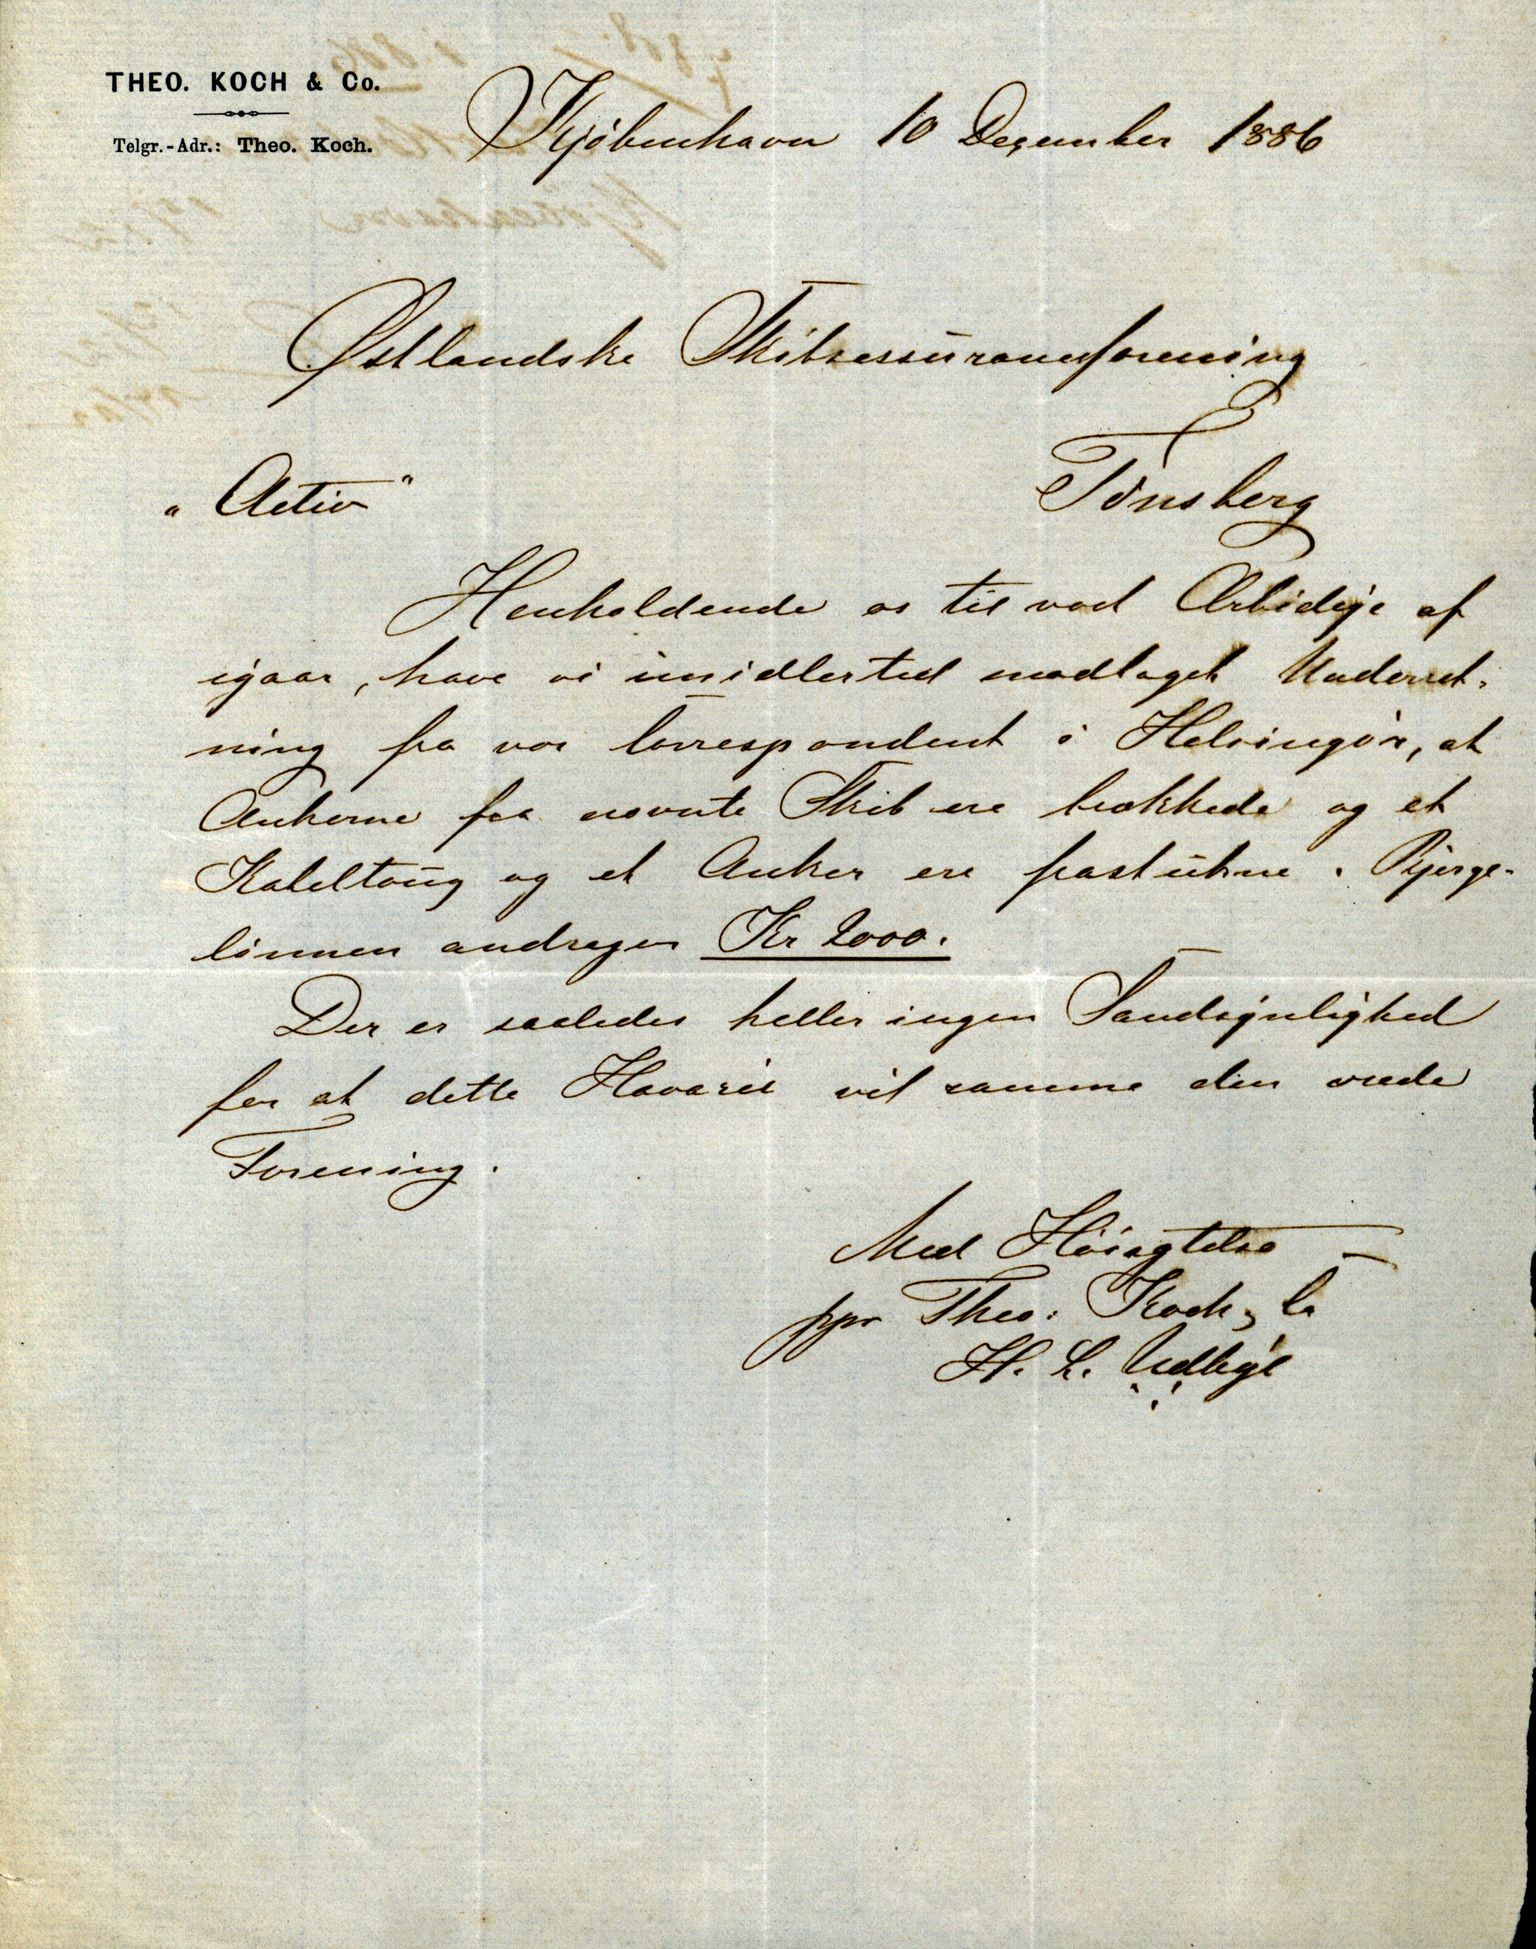 THEO. KOCH & Co.
Telgr.-Adr.: Theo. Koch.
Kjøbenhavn 10 December 1886
Østlandske Skibsassuranceforening
Tønsberg
„Activ"
Henholdende os til vort Ærbødige af
igaar, have vi imidlertid modtaget Underret-
ning fra vor Correspondent i Helsingør, at
Ankerne paa nævnte Skib ere brækkede og et
Kabeltoug og et Anker ere frastukne. Bjerge-
lønnen andrager Kr 2000.
Der er saaledes heller ingen Sandsynlighed
for at dette Havari vil ramme den ærede
Forening.
Med Høiagtelse
ppr Theo. Koch & Co
H. L.